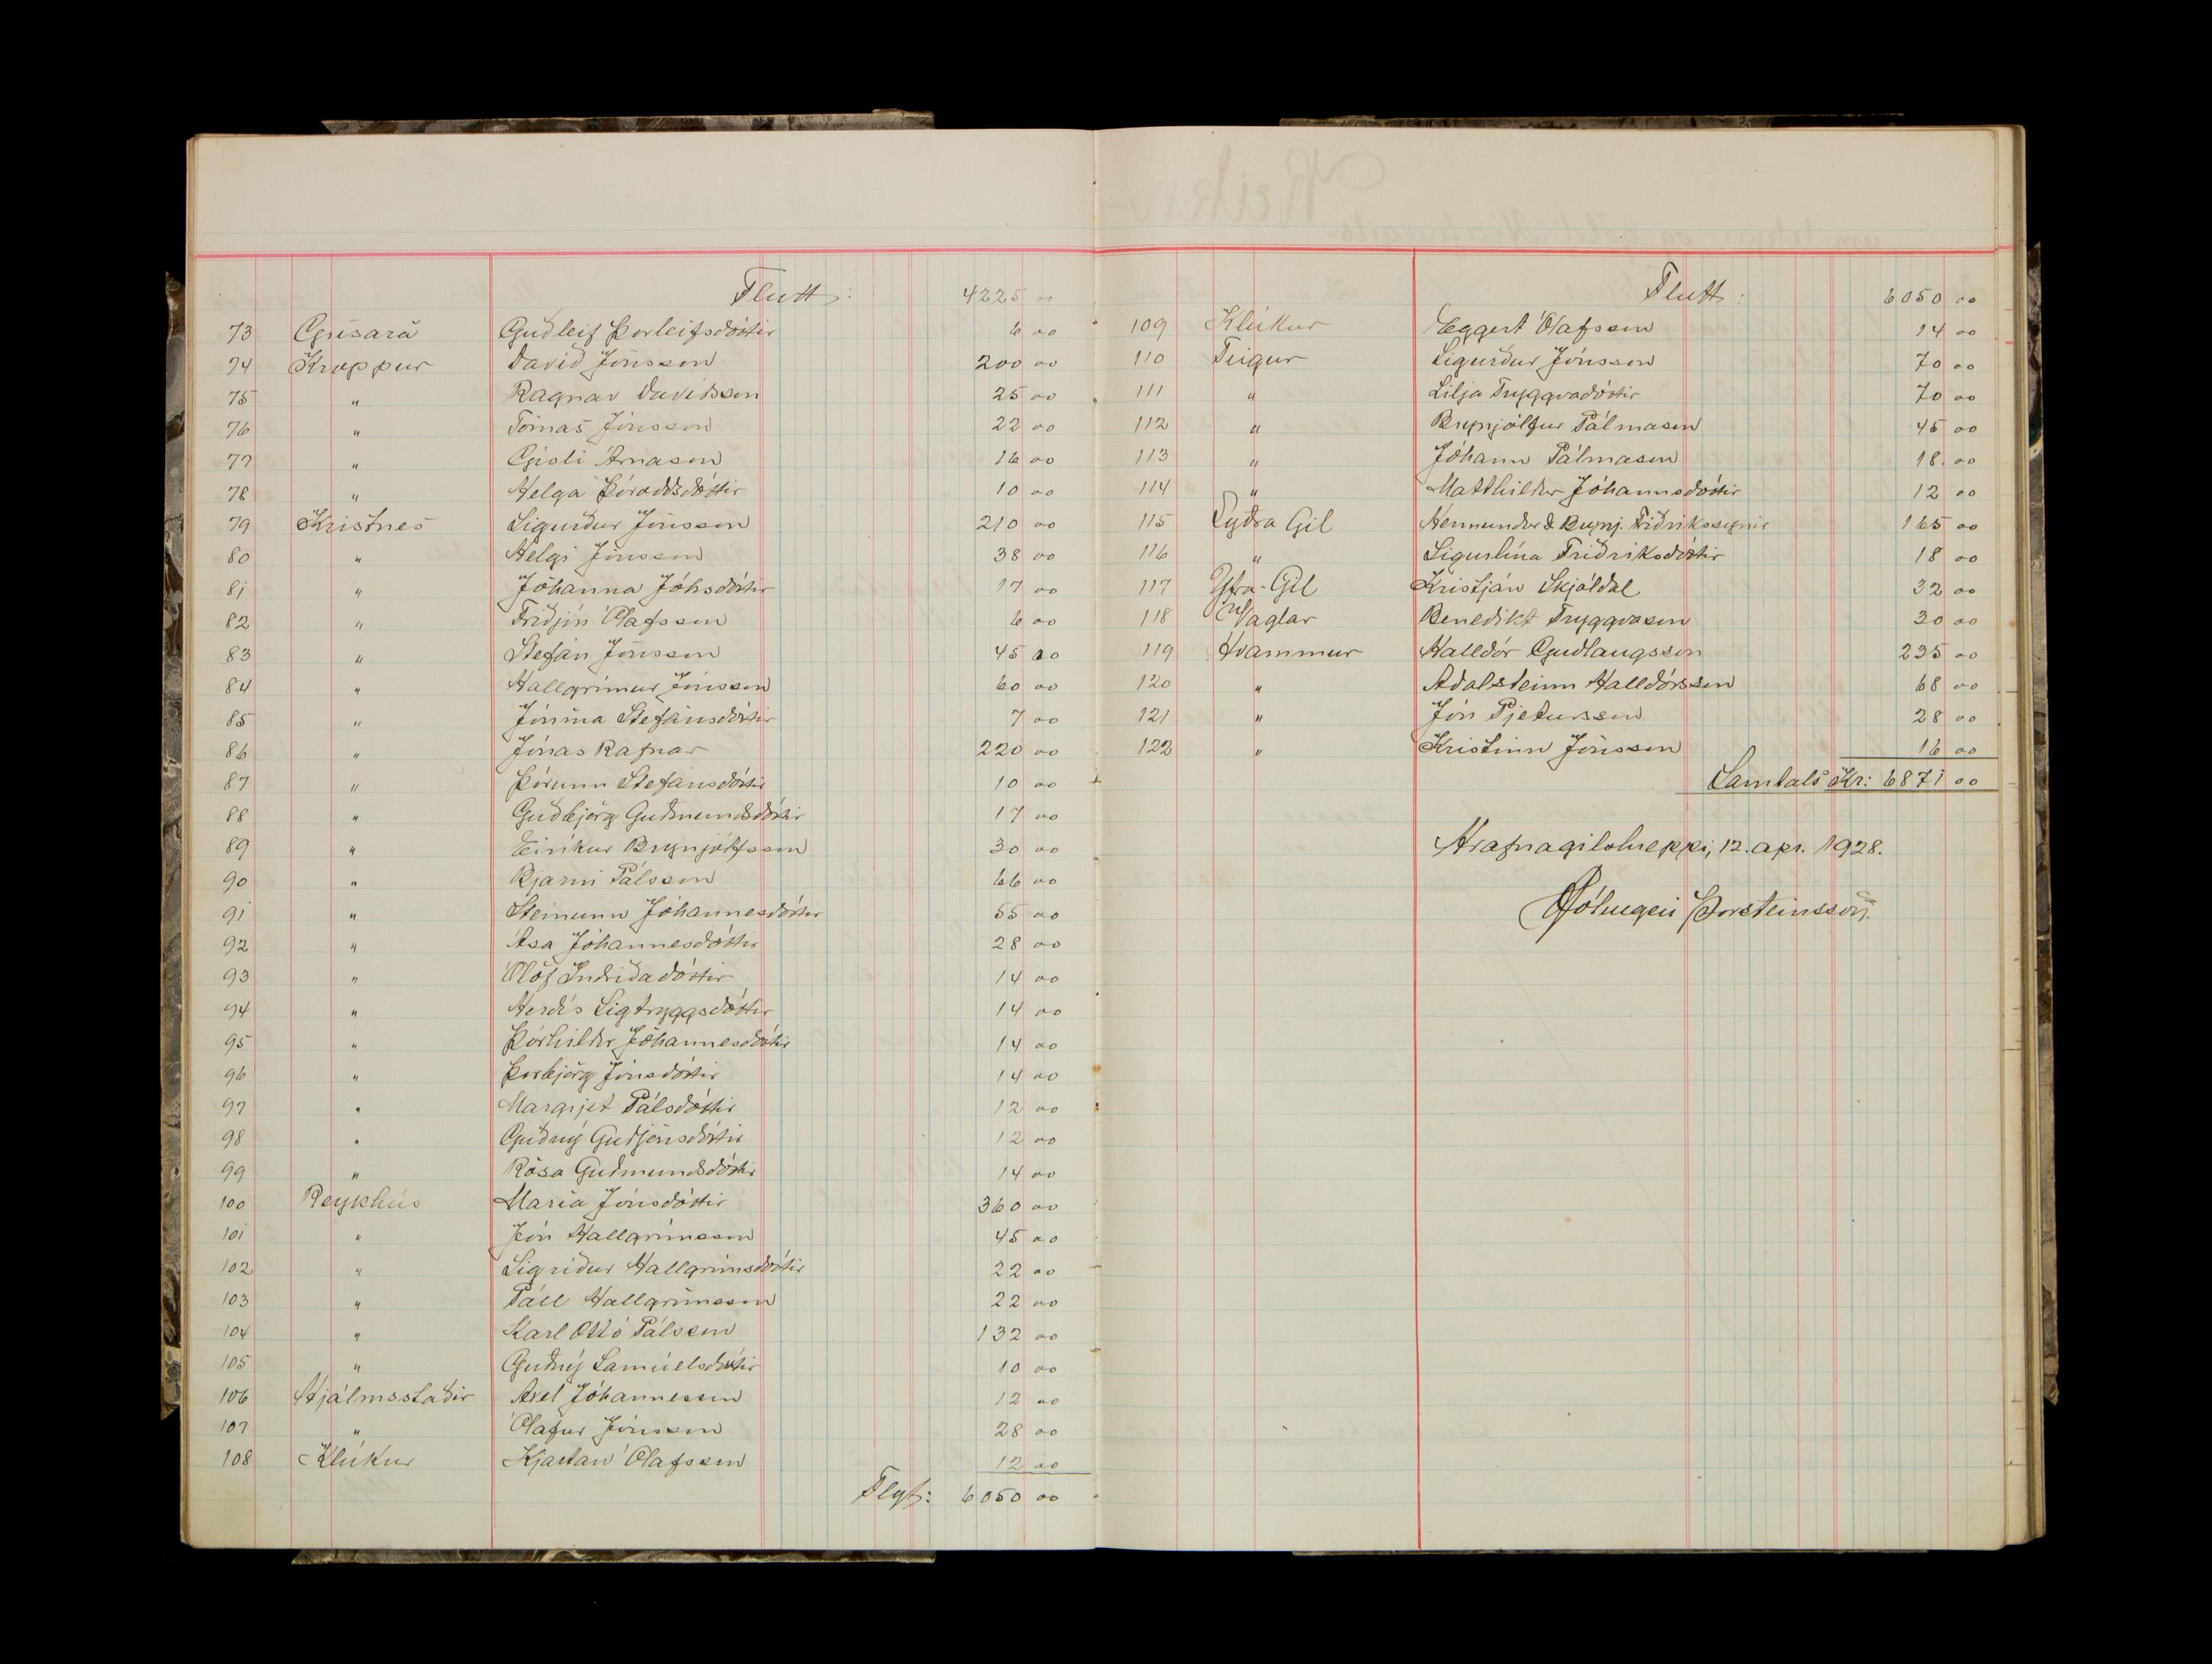 Flutt: 4225 00
73 Grísará Guðleif Þorleifsdóttir 6 00
74 Kroppur Davíð Jónsson 200 00
75 " Ragnar Davíðsson 25 00
76 " Tómas Jónsson 22 00
77 " Gísli Árnason 16 00
78 " Helga Þóroddsdóttir 10 00
79 Kristnes Sigurður Jónsson 210 00
80 " Helgi Jónsson 38 00
81 " Jóhanna Jóhsdóttir 17 00
82 " Friðjón Ólafsson 6 00
83 " Stefán Jónsson 45 00
84 " Hallgrímur Jónsson 60 00
85 " Jónína Stefánsdóttir 7 00
86 " Jónas Rafnar 220 00
87 " Þórunn Stefánsdóttir 10 00
88 " Guðbjörg Guðmundsdóttir 17 00
89 " Eiríkur Brynjólfsson 30 00
90 " Bjarni Pálsson 66 00
91 " Steinunn Jóhannesdóttir 55 00
92 " Ása Jóhannesdóttir 28 00
93 " Ólöf Indriðadóttir 14 00
94 " Herdís Sigtryggsdóttir 14 00
95 " Þórhildur Jóhannesdóttir 14 00
96 " Þorbjörg Jónsdóttir 14 00
97 " Margrjet Pálsdóttir 12 00
98 " Guðný Guðjónsdóttir 12 00
99 " Rósa Guðmundsdóttir 14 00
100 Reykhús María Jónsdóttir 360 00
101 " Jón Hallgrímsson 45 00
102 " Sigríður Hallgrímsdóttir 22 00
103 " Páll Hallgrímsson 22 00
104 " Karl Ottó Pálsson 132 00
105 " Guðný Samúelsdóttir 10 00
106 Hjálmsstaðir Axel Jóhannesson 12 00
107 " Ólafur Jónsson 28 00
108 Klúkur Kjartan Ólafsson 12 00
Flyt: 6050 00
Flutt: 6050 00
109 Klúkur Eggert Ólafsson 14 00
110 Teigur Sigurður Jónsson 70 00
111 " Lilja Tryggvadóttir 70 00
112 " Brynjólfur Pálmason 45 00
113 " Jóhann Pálmason 18 00
114 " Matthildur Jóhannsdóttir 12 00
115 Syðra Gil Hermundur & Brynj. Friðrikssynir 165 00
116 " Sigurlína Friðriksdóttir 18 00
117 Ytra-Gil Kristján Skjóldal 32 00
118 Vaglar Benedikt Tryggvason 30 00
119 Hvammur Halldór Guðlaugsson 235 00
120 " Aðalsteinn Halldórsson 68 00
121 " Jón Pjetursson 28 00
122 " Kristinn Jónsson 16 00
Samtals Kr: 6871 00
Hrafnagilshreppi, 12. apr. 1928.
Hólmgeir Þorsteinsson.